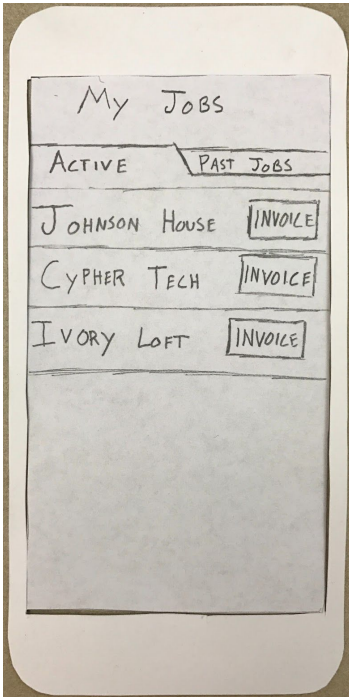 My Jobs
Active Past Jobs
Johnson House Invoice
Cypher Tech Invoice
Ivory Loft Invoice